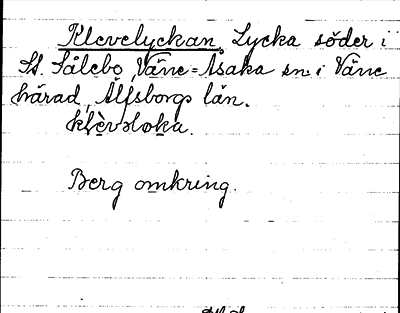 Klevelyckan, Lycka söder i
St. Sålebo, Väne=Åsaka sn i Väne
härad, Älfsborgs län.
Berg omkring.